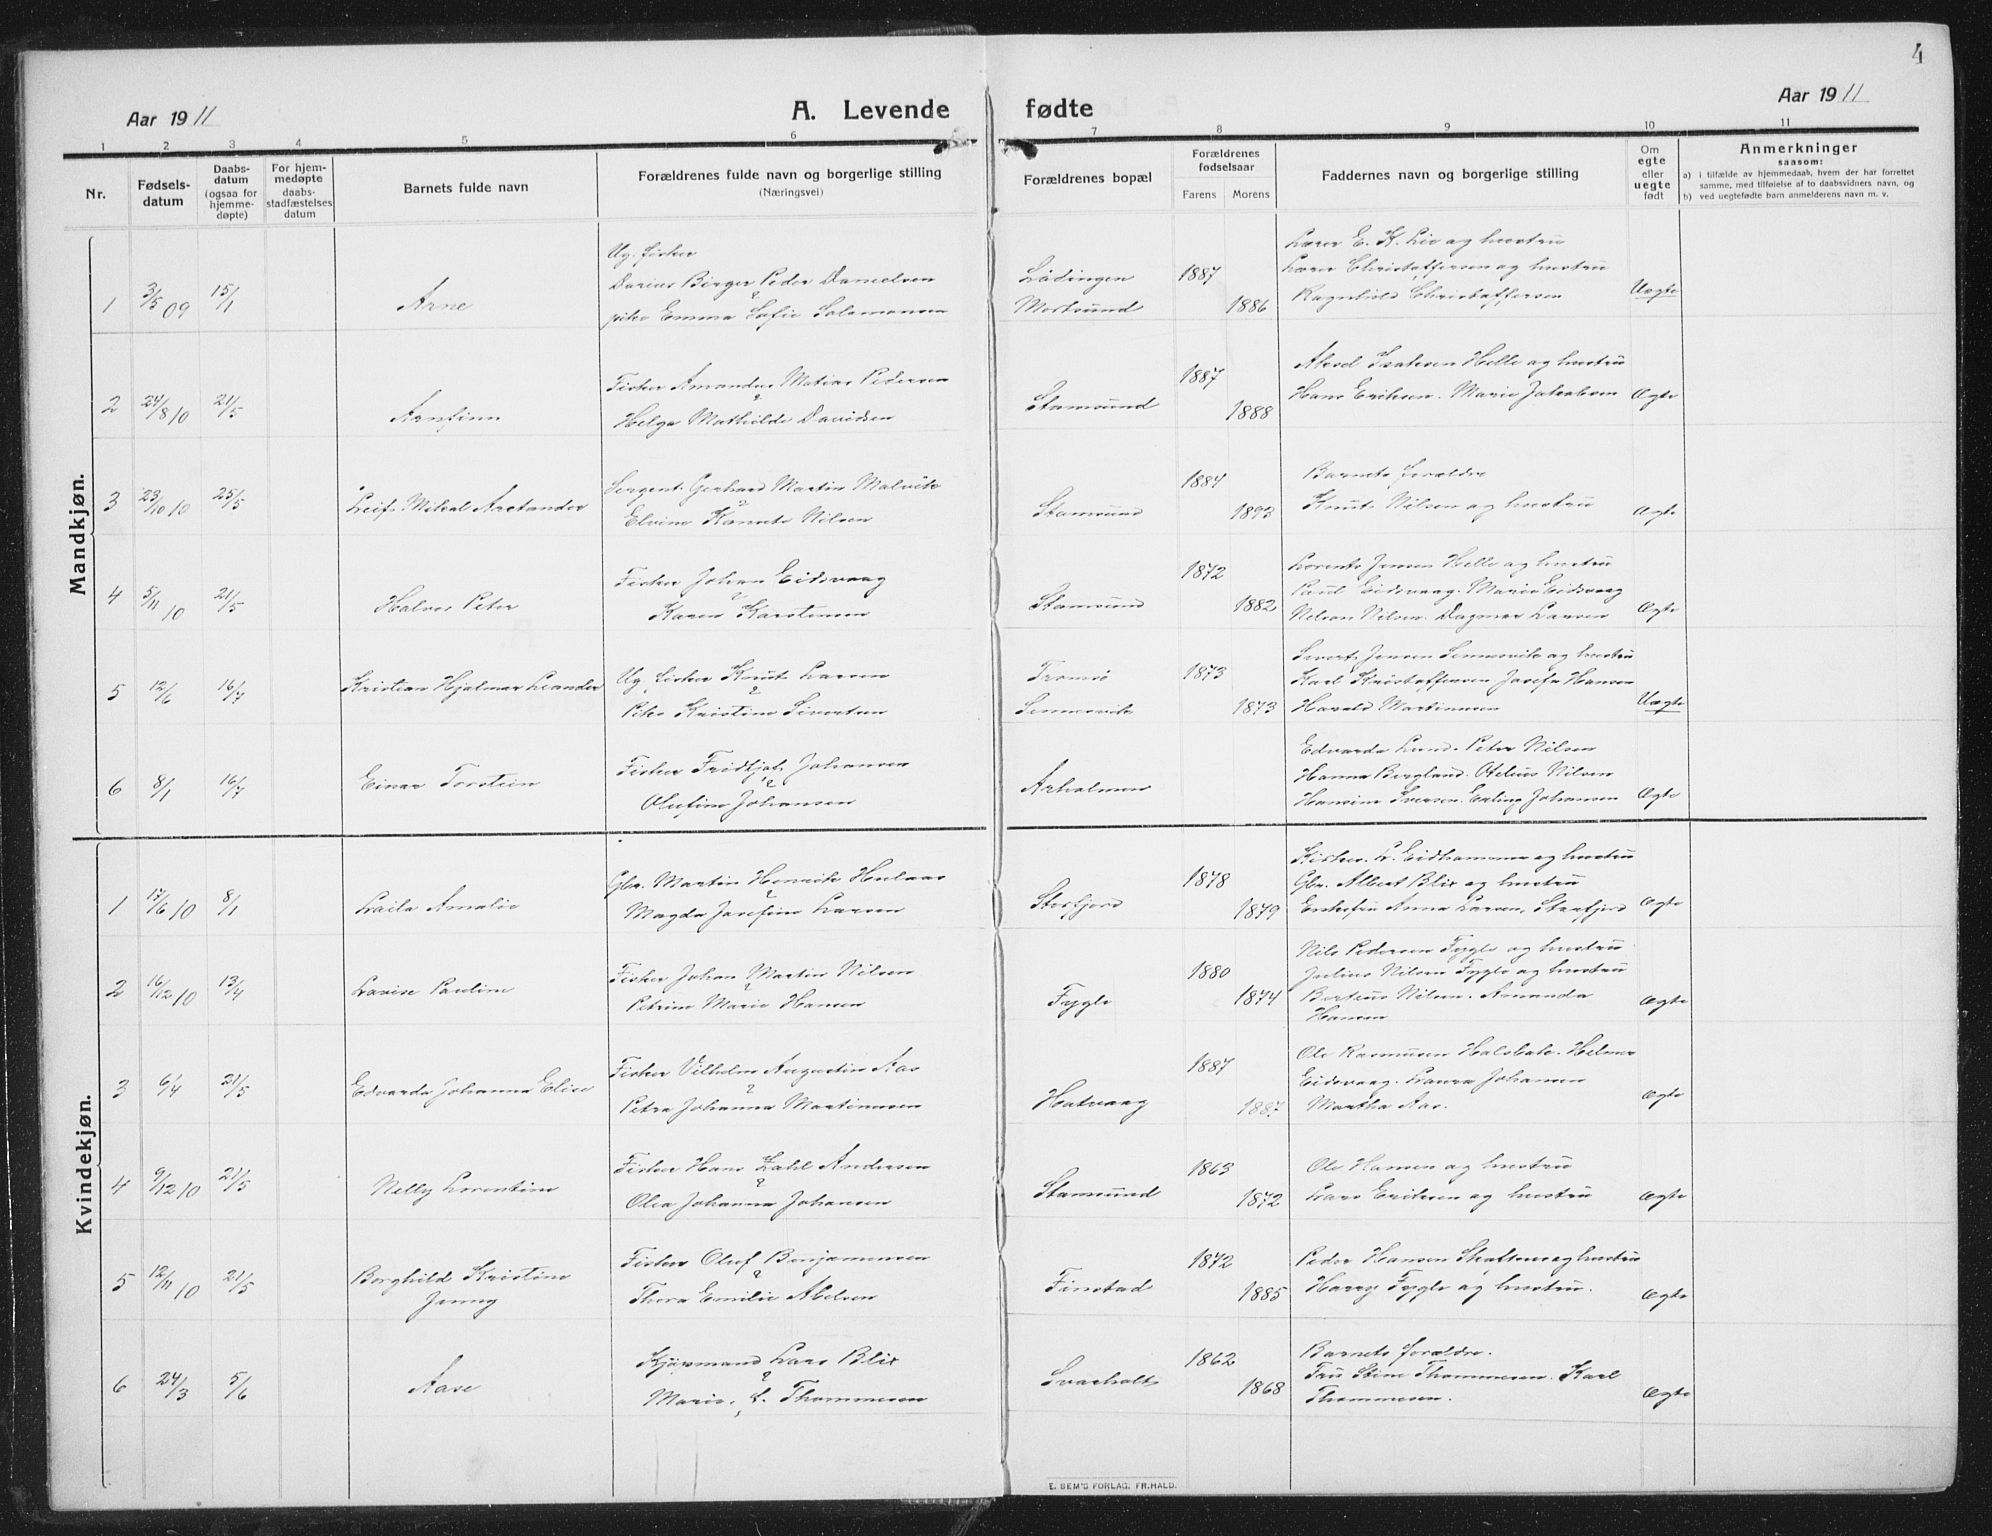 4
Aar 1911
A. Levende fødte
Aar 1911
1 2 3 4 5 6 7 8 9 10 11
Nr.
Fødsels-
datum
Daabs-
datum
(ogsaa for
hjemme-
døpte)
For hjem-
medøpte
daabs-
stadfæstelses
datum
Barnets fulde navn
Forældrenes fulde navn og borgerlige stilling
(Næringsvei)
Forældrenes bopæl
Forældrenes
fødselsaar
Farens Morens
Faddernes navn og borgerlige stilling
Om
egte
eller
uegte
født
Anmerkninger
saasom:
a) i tilfælde av hjemmedaab, hvem der har forrettet
samme, med tilføielse af to daabsvidners navn, og
b) ved uegtefødte barn anmelderens navn m. v.
Mandkjøn.
1 3/5 09 15/1 Arne
Ug. fisker
Darius Birger Peder Danielsen
&
pike Emma Sofie Salamonsen
Lødingen
Mortsund
1887
1886
Lærer E. K. Lie og hustru
Lærer Christoffersen og hustru
Ragnhild Christoffersen
Uegte
2 24/8 10 21/5 Arnfinn
Fisker Amandus Matias Pedersen
&
Helga Mathilde Davidsen
Stamsund
1887
1888
Aksel Isaksen Helle og hustru
Hans Eriksen. Marie Jakobsen
Ægte
3 23/10 10 25/5 Leif Mikal Aretander
Sergent Gerhard Martin Malvik
&
Elvine Nilsen
Stamsund
1884
1893
Barnets forældre
Knut Nilsen og hustru
Ægte
4 5/11 10 21/5 Halvor Peter
Fisker Johan Eidsvaag
&
Karen Karstensen
Stamsund
1872
1882
Lorents Jensen Helle og hustru
Paul Eidsvaag. Marie Eidsvaag
Nelson Nilsen. Dagmar Larsen
Ægte
5 12/6 16/7 Kristian Hjalmar Leander
Ug. fisker Knut Larsen
&
Pike Kristine Sivertsen
Tromsø
Sennesvik
1873
1873
Sivert Jensen Sennesvik og hustru
Karl Kristoffersen Josefa Hansen
Harald Martinussen
Uægte
6 8/1 16/7 Einar Torstein
Fisker Fridtjof Johansen
&
Olufine Johansen
Arholmen
Edvarda Lund. Peter Nilsen
Hanna Bergland. Otelius Nilsen
Hansine Iversen. Erling Johansen
Ægte
Kvindekjøn.
1 17/6 10 8/1 Laila Amalie
Gbr. Martin Henrik
&
Magda Josefine Larsen
Storfjord
1878
1879
Kirkes. L. Eidhammer og hustru
Gbr. Albert Blix og hustru
Enkefru Anna Larsen, Storfjord
Ægte
2 16/12 10 13/4 Lovise Pauline
Fisker Johan Martin Nilsen
&
Petrine Marie Hansen
Fygle
1880
1874
Nils Pedersen Fygle og hustru
Julius Nilsen Fygle og hustru
Berteus Nilsen. Amanda
Hansen
Ægte
3 6/4 21/5 Edvarda Johanna Elise
Fisker Vilhelm Augustin Aas
&
Petra Johanna Martinussen
Hortvaag
1887
1887
Ole Rasmussen Halsbak. Helmer
Eidsvaag. Laura Johansen
Martha Aas.
Ægte
4 9/12 10 21/5 Nelly Lorentine
Fisker Hans Zahl Andersen
&
Olea Johanna Johansen
Stamsund
1863
1872
Ole Hansen og hustru
Lars Eriksen og hustru
Ægte
5 12/11 10 21/5 Borghild Kristine
Jenny
Fisker Oluf Benjaminsen
&
Thora Emilie Abelsen
Finstad
1872
1885
Peder Hansen Skaftnes og hustru
Harry Fygle og hustru.
Ægte
6 24/3 5/6 Aase
Kjøpmand Lars Blix
&
Marie, f. Thommesen
Svarholt
1862
1868
Barnets forældre.
Fru Stine Thommesen. Karl
Thommesen.
Ægte
E. SEM'S FORLAG, FR.HALD.